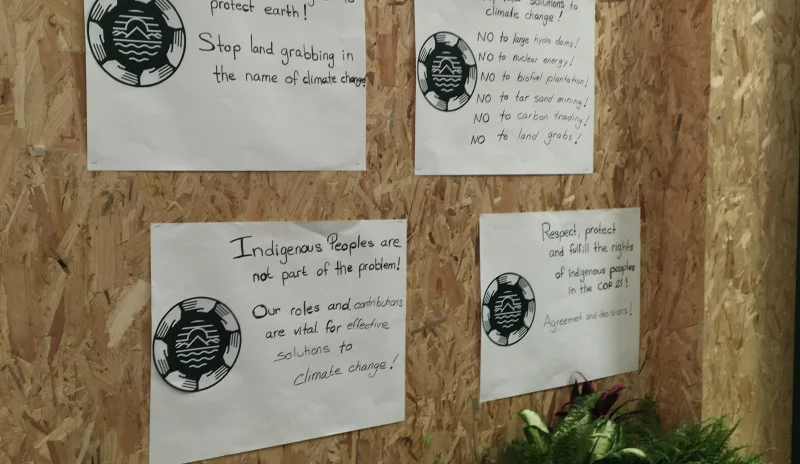 protect earth!
Stop land grabbing in
the name of climate change!
solutions to
climate change!
NO to large hydro dams!
NO to nuclear energy!
NO to biofuel plantation!
NO to tar sand mining!
NO to carbon trading!
NO to land grabs!
Indigenous Peoples are
not part of the problem!
Our roles and contributions
are vital for effective
solutions to
climate change!
Respect, protect
and fulfill the rights
of indigenous peoples
in the COP 21!
Agreement and decisions!